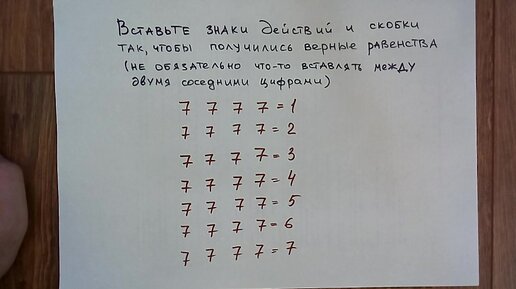 Вставьте знаки действий и скобки
так, чтобы получились верные равенства
(не обязательно что-то вставлять между
двумя соседними цифрами)
7 7 7 7 = 1
7 7 7 7 = 2
7 7 7 7 = 3
7 7 7 7 = 4
7 7 7 7 = 5
7 7 7 7 = 6
7 7 7 7 = 7